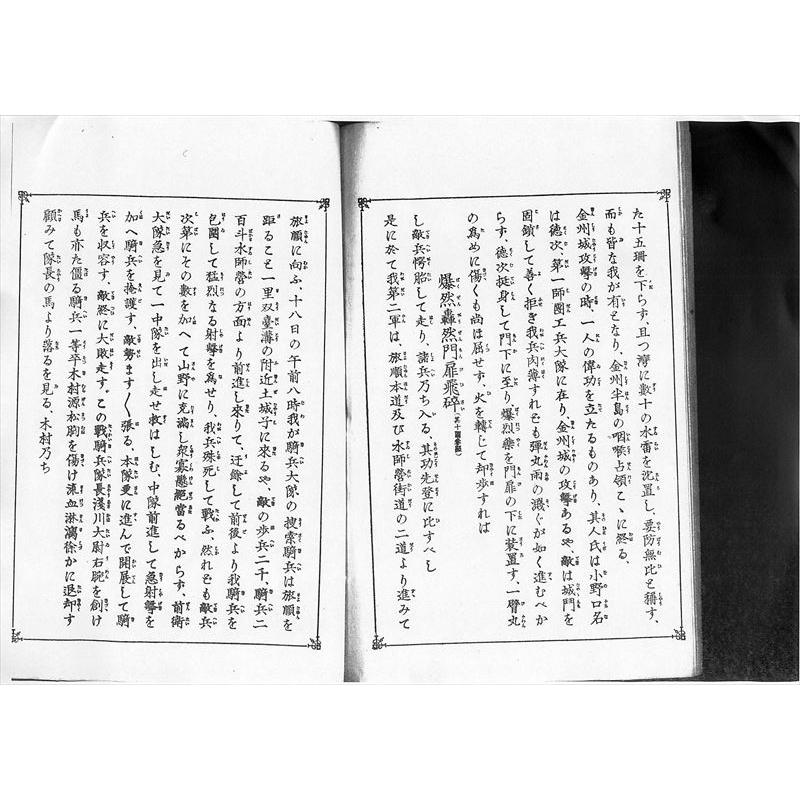 た十五珊を下らず、且つ灣に數十の水雷を沈置し、要防無比と稱す、
而も皆な我が有となり、金州半島の咽喉占領こゝに終る、
金州城攻擊の時、一人の偉功を立たるものあり、其人氏は小野口名
は德次、第一師團工兵大隊に在り、金州城の攻擊あるや、敵は城門を
固鎖して善く拒き我兵肉薄すれども彈丸雨の濺ぐが如く進むべか
らず、德次挺身して門下に至り、爆烈藥を門扉の下に裝置す、一臂丸
の爲めに傷くも尚は屈せず、火を轉じて却歩すれば
爆然轟然門扉飛碎
し敵兵愕胎して走り、諸兵乃ち入る、其功先登に比すべし
是に於て我第二軍は、旅順本道及び水師營街道の二道より進みて
旅順に向ふ、十八日の午前八時我が騎兵大隊の搜索騎兵は旅順を
距ること一里双臺溝の附近土城子に來るや、敵の歩兵二千、騎兵二
百斗水師營の方面より前進し來りて、迂餘して前後より我騎兵を
包圍して猛烈なる射擊を爲せり、我兵殊死して戰ふ、然れども敵兵
次第にその數を加へて山野に充滿し衆寡懸絕當るべからず、前衛
大隊急を見て一中隊を出し走せ救はしむ、中隊前進して急射擊を
加へ騎兵を掩護す、敵勢ます〱張る、本隊更に進んで開展して騎
兵を收容す、敵終に大敗走す、この戰騎兵隊長淺川大尉右腕を創け
馬も亦た僵る騎兵一等卒木村源松胸を傷け凍血淋漓徐かに退却す
顧みて隊長の馬より落るを見る、木村乃ち